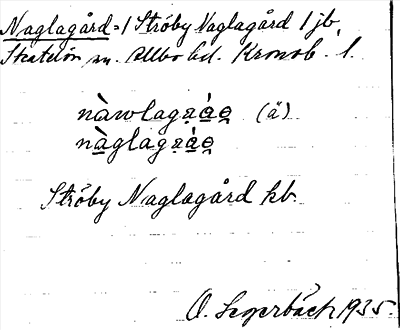 Naglagård = 1 Ströby Naglagård 1 jb.
Skatelöv sn. Allbo hd. Kronob. l.
nàwlagạ́ạọ (ä)
nàglagạ́ạọ
Ströby Naglagård kb.
O. Segerbäck 1935.